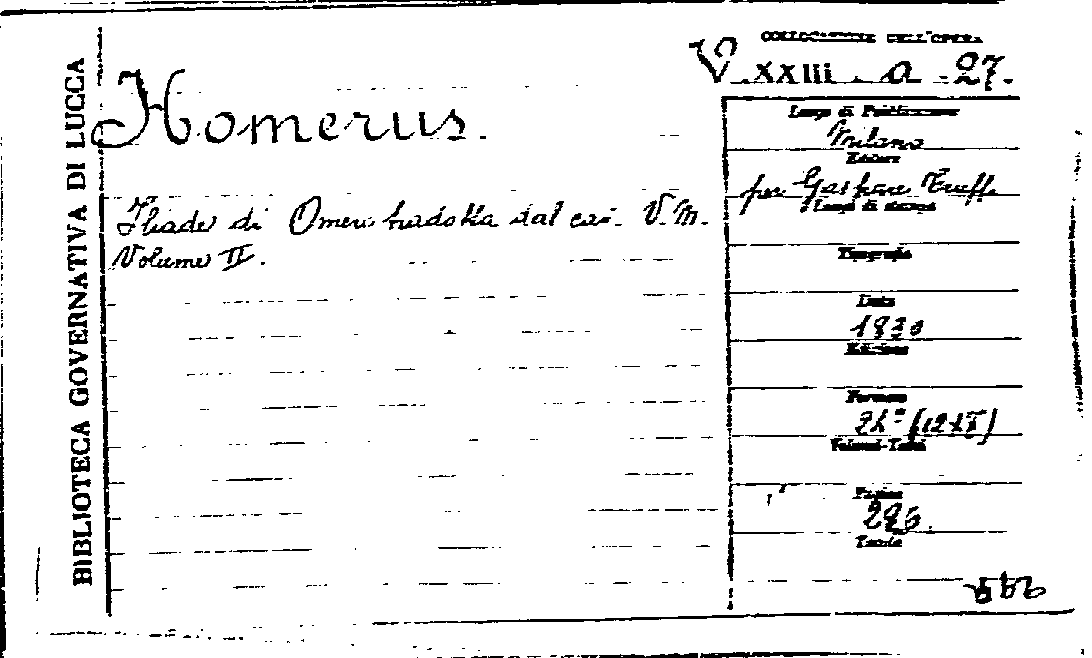 BIBLIOTECA GOVERNATIVA DI LUCCA
COLLOCAZIONE DELL'OPERA
V. XXIII. a. 27.
Homerus.
Iliade di Omero tradotta dal cav. V. M.
Volume II.
Luogo di Pubblicazione
Milano
Editore
per Gaspare Truffi
Luogo di stampa
Tipografia
Data
1830
Edizione
Formato
24° (12 x 7)
Volumi-Tomi
Pagine
Tavole